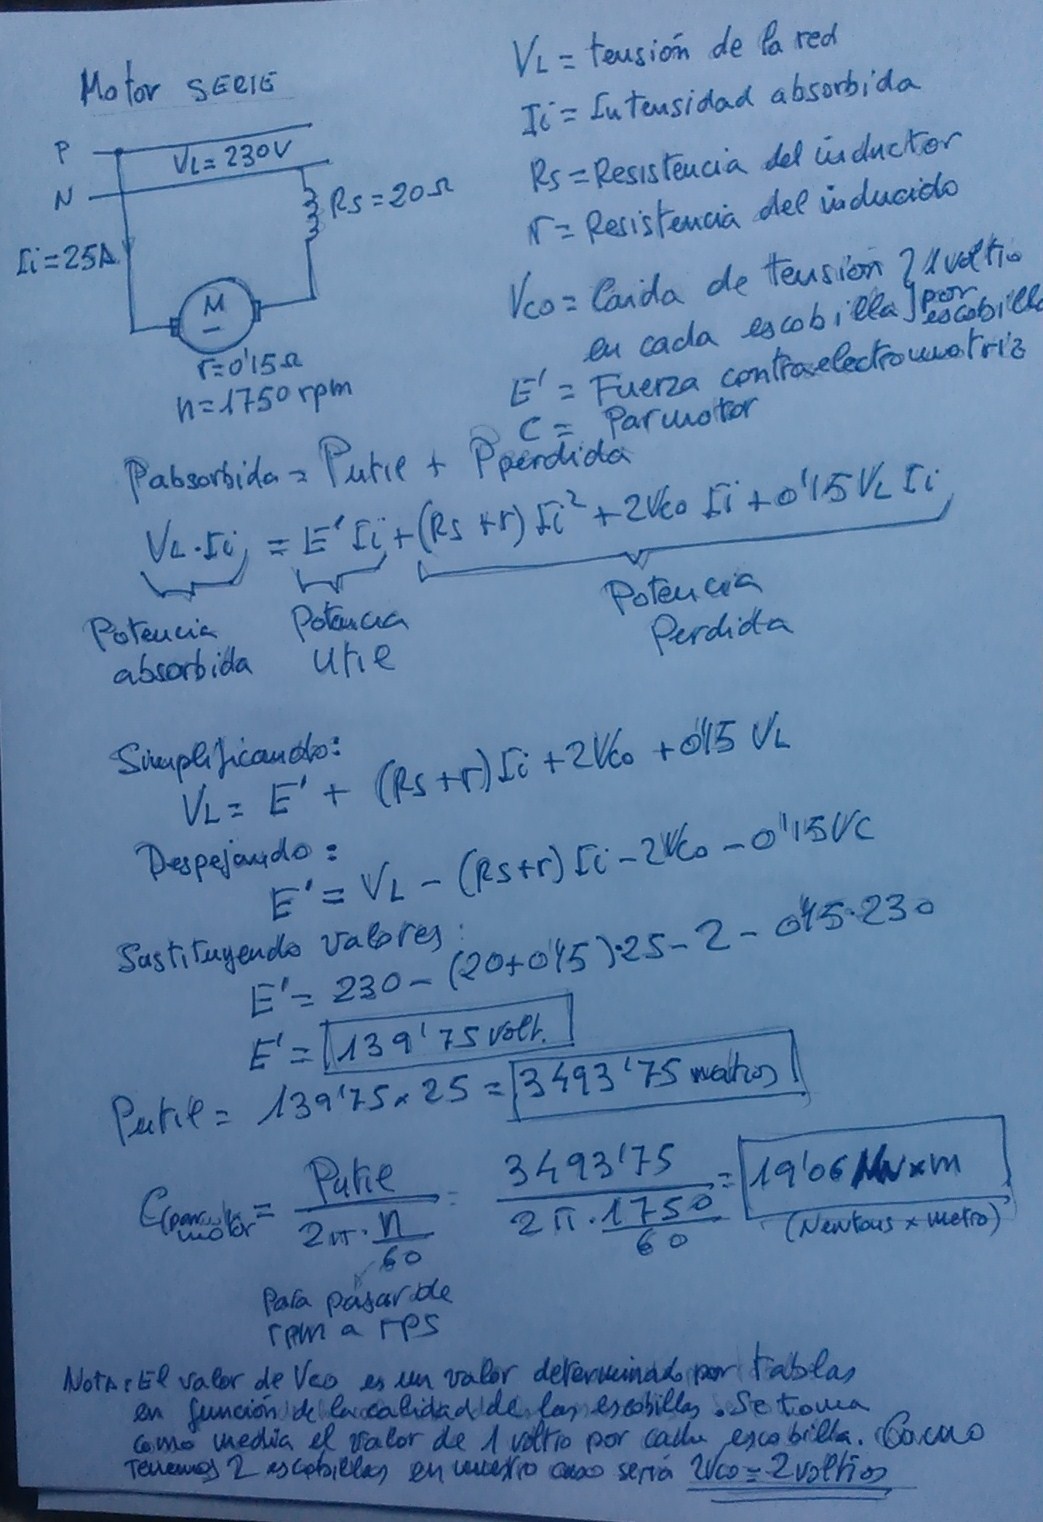 Motor SERIE
P
N
VL = 230V
Rs = 20Ω
Ii = 25A
M
r = 0'15Ω
n = 1750 rpm
VL = tensión de la red
Ii = Intensidad absorbida
Rs = Resistencia del inductor
r = Resistencia del inducido
Vco = Caida de tensión } 1 voltio
en cada escobilla } por escobilla
E' = Fuerza contraelectromotriz
C = Par motor
Pabsorbida = Putil + Pperdida
VL · Ii = E' Ii + (Rs + r) Ii² + 2Vco Ii + 0'15 VL Ii
Potencia absorbida
Potencia util
Potencia Perdida
Simplificando:
VL = E' + (Rs + r) Ii + 2Vco + 0'15 VL
Despejando:
E' = VL - (Rs + r) Ii - 2Vco - 0'15 VC
Sustituyendo valores:
E' = 230 - (20 + 0'15) · 25 - 2 - 0'15 · 230
E' = 139'75 volt.
Putil = 139'75 x 25 = 3493'75 watios
C(par motor) = Putil / 2π · n/60 = 3493'75 / 2π · 1750/60 = 19'06 N x m
(Newtons x metro)
Para pasar de
rpm a rps
Nota: El valor de Vco es un valor determinado por tablas
en función de la calidad de las escobillas. Se toma
como media el valor de 1 voltio por cada escobilla. Como
tenemos 2 escobillas en nuestro caso sería 2Vco = 2 voltios